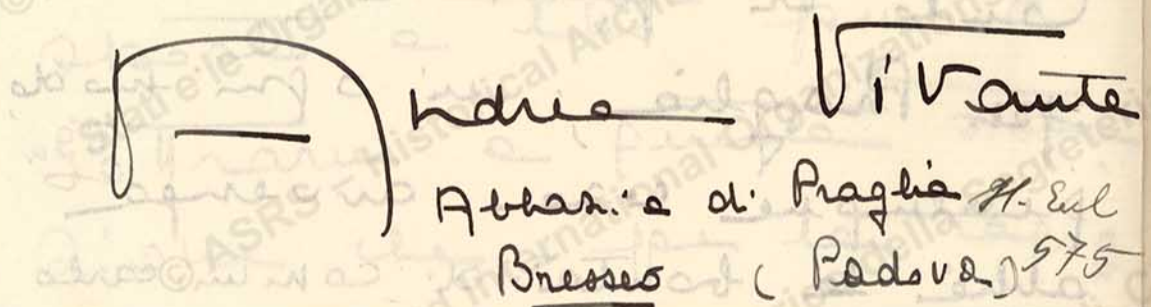 Andrea Vivante
Abbazia di Praglia
Bresseo (Padova) 575